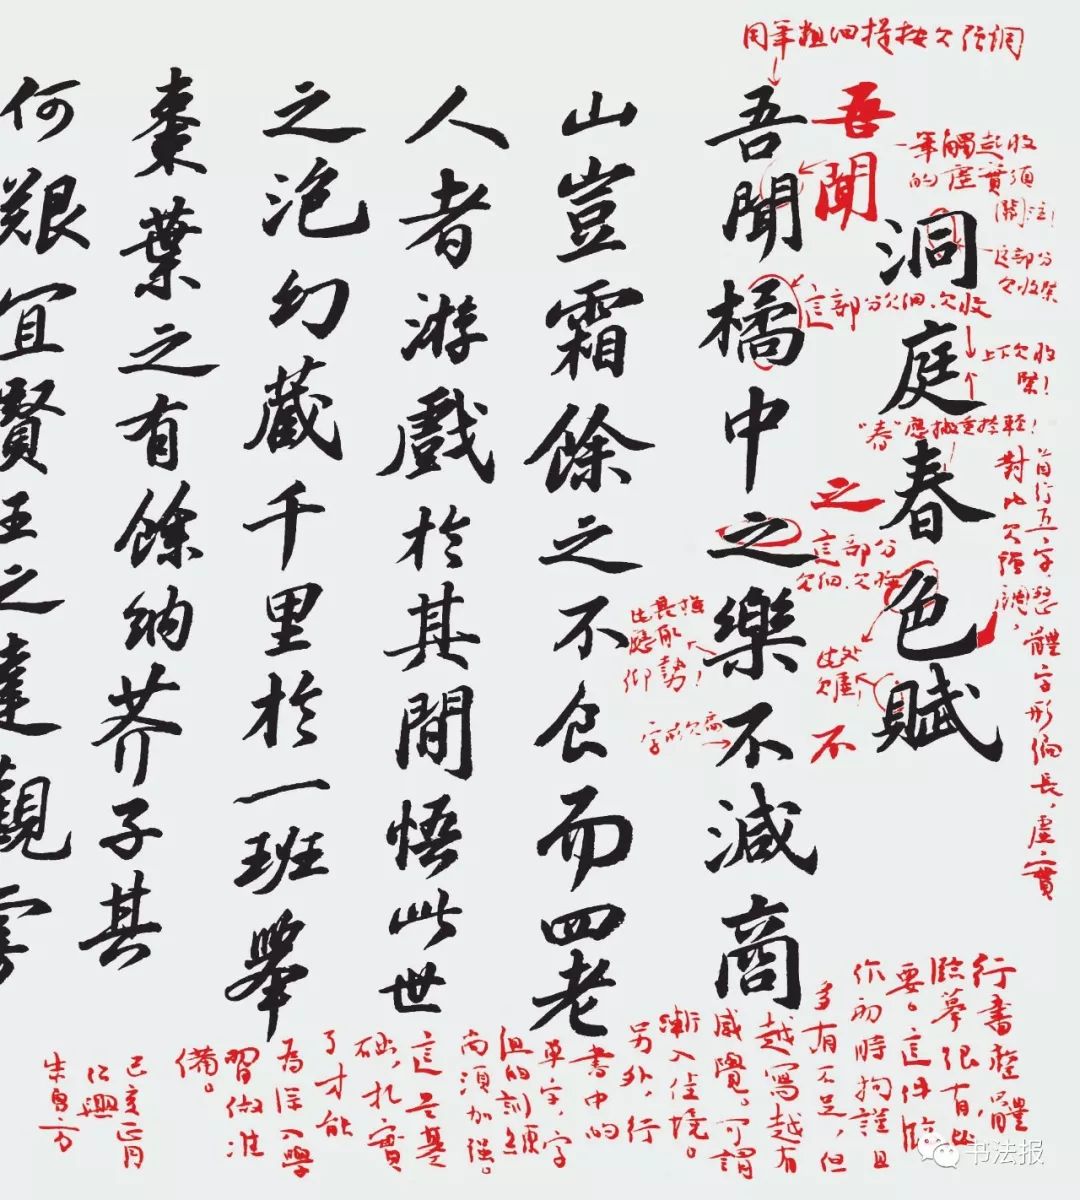 洞庭春色賦
吾聞橘中之樂不減商
山豈霜餘之不食而四老
人者游戲於其間悟此世
之泡幻藏千里於一班舉
棗葉之有餘納芥子其
何艱宜賢王之達觀寄
同筆粗细提按欠强調
吾聞
筆觸起收
的虛實須
關注!
這部分
欠收緊
這部分欠细、欠收
上下欠收
緊!
"春"應撇重捺輕!
首行五字,整體字形偏長,虛實
對比欠强調,
之
這部分
欠细、欠
此處
欠虛
勢!
字形欠高
不
行書整體
臨摹很有必
要。這件臨
作初時拘謹且
多有不足,但
越寫越有
感覺。可謂
漸入佳境。
另外,行
書中的
單字,字
组的訓練
尚須加强。
這是基
礎,扎實
了才能
為深入學
習做准
備。
己亥正月
仁興
朱勇方
书法报